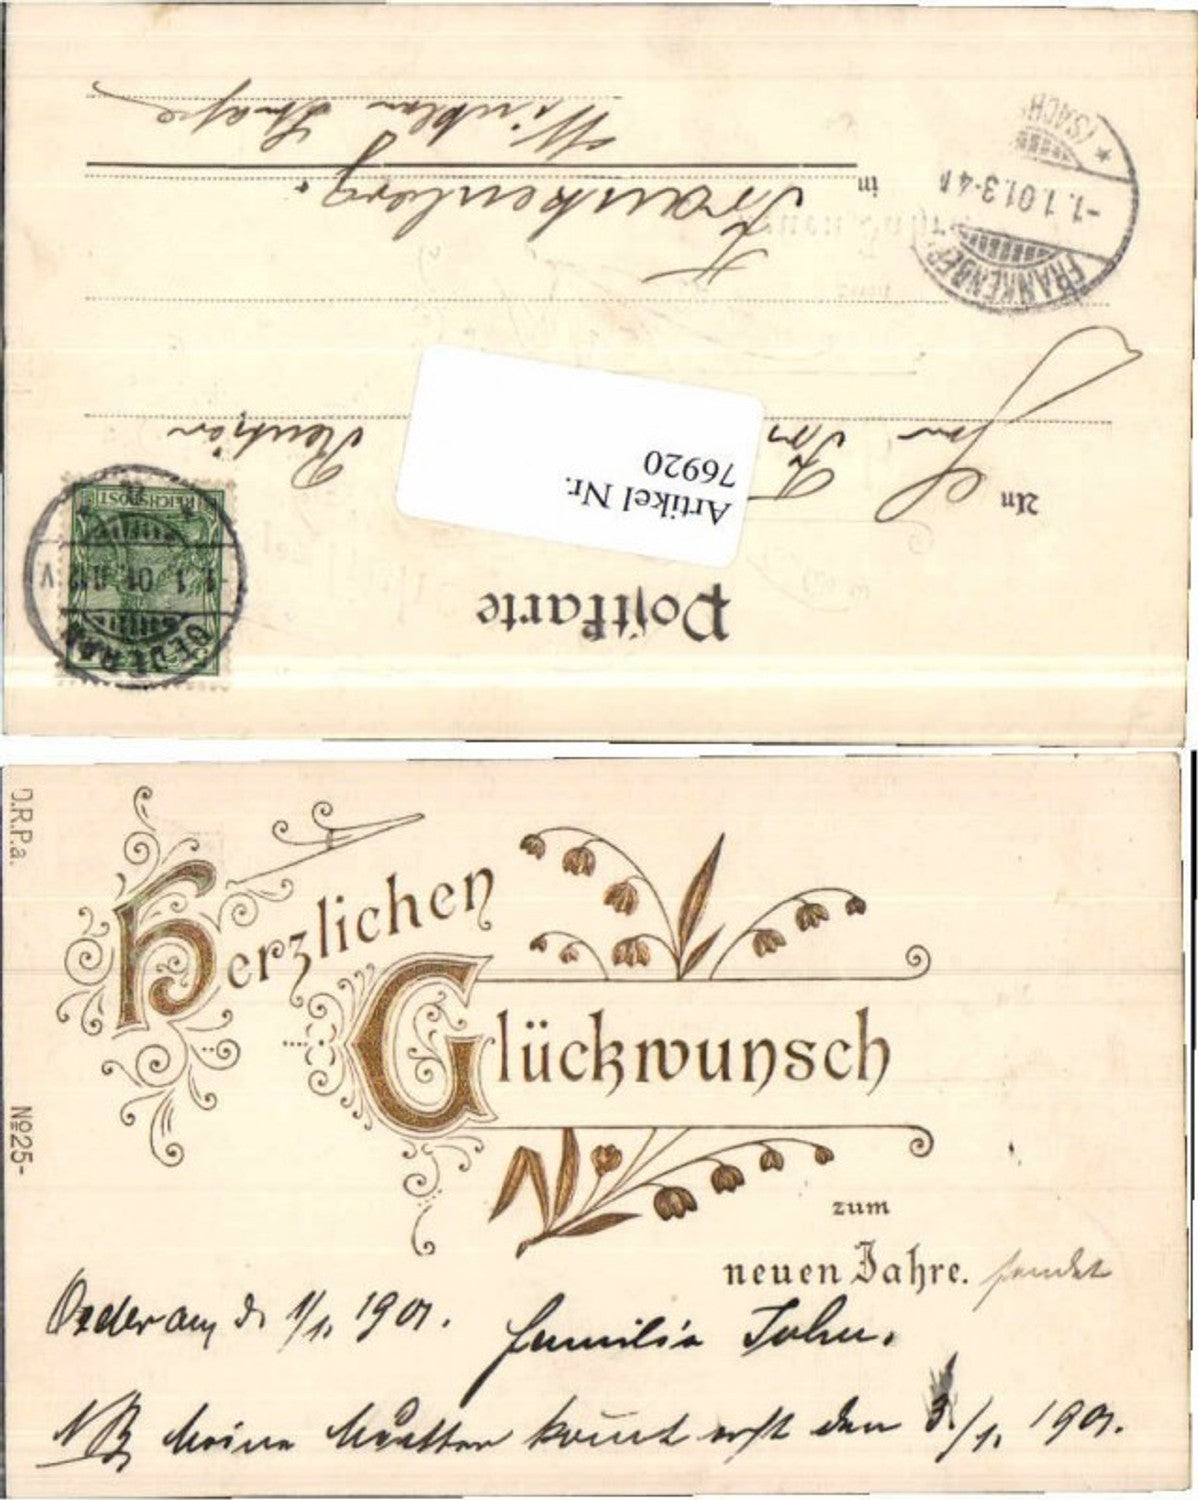 Postkarte
An
Frankenberg.
in
Winkler Straße
Artikel Nr.
76920
REICHSPOST
OEDERAN
1.1.01.
FRANKENBERG
(SACHS
-1.1.01.3-4N
D.R.P.a.
№25-
Herzlichen
Glückwunsch
zum
neuen Jahre. sendet
Oederan, d. 1/1. 1901. Familie John.
NB Meine Mutter kommt erst den 3./1. 1901.